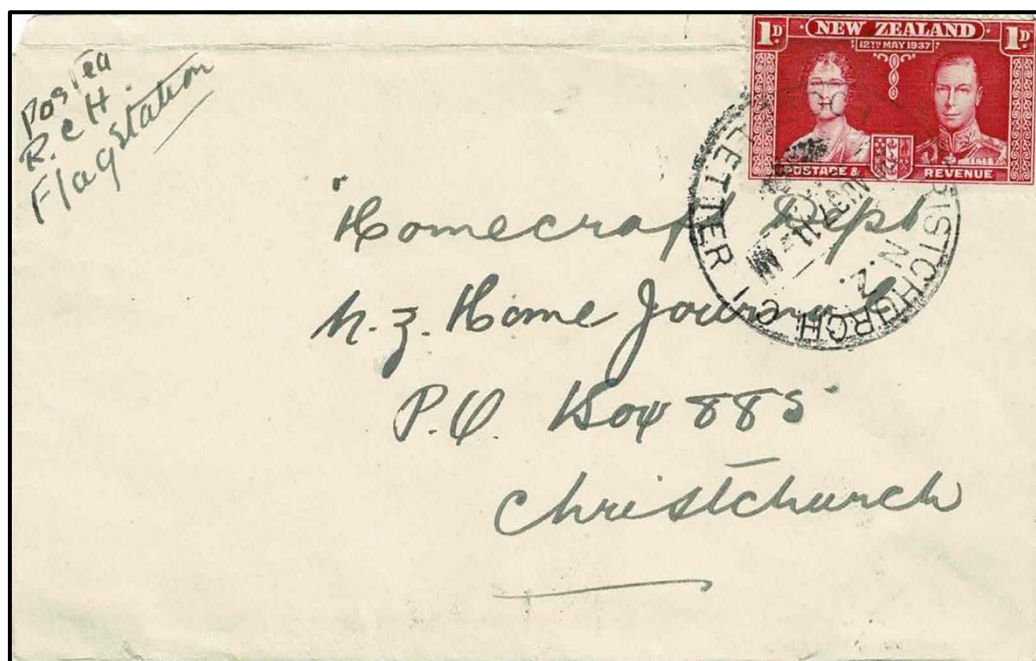 Posted
R.C.H.
Flag Station
1D NEW ZEALAND 1D
12TH MAY 1937
POSTAGE & REVENUE
LETTER
CHRISTCHURCH C1
N.Z.
"Homecraft Dept
N.Z. Home Journal
P.O. Box 885
Christchurch